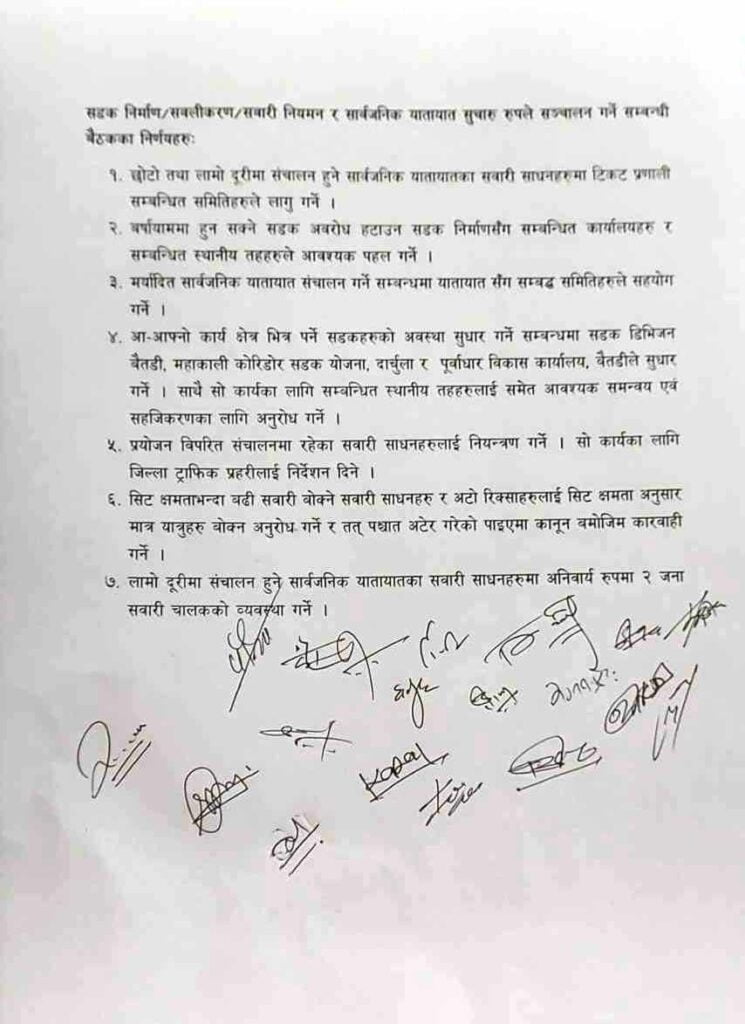 सडक निर्माण/सवलीकरण/सवारी नियमन र सार्वजनिक यातायात सुचारु रुपले सञ्चालन गर्ने सम्बन्धी
बैठकका निर्णयहरुः
१. छोटो तथा लामो दूरीमा संचालन हुने सार्वजनिक यातायातका सवारी साधनहरुमा टिकट प्रणाली
सम्बन्धित समितिहरुले लागु गर्ने ।
२. बर्षायाममा हुन सक्ने सडक अवरोध हटाउन सडक निर्माणसँग सम्बन्धित कार्यालयहरु र
सम्बन्धित स्थानीय तहहरुले आवश्यक पहल गर्ने ।
३. मर्यादित सार्वजनिक यातायात संचालन गर्ने सम्बन्धमा यातायात सँग सम्बद्ध समितिहरुले सहयोग
गर्ने ।
४. आ-आफ्नो कार्य क्षेत्र भित्र पर्ने सडकहरुको अवस्था सुधार गर्ने सम्बन्धमा सडक डिभिजन
बैतडी, महाकाली कोरिडोर सडक योजना, दार्चुला र पूर्वाधार विकास कार्यालय, बैतडीले सुधार
गर्ने । साथै सो कार्यका लागि सम्बन्धित स्थानीय तहहरुलाई समेत आवश्यक समन्वय एवं
सहजिकरणका लागि अनुरोध गर्ने ।
५. प्रयोजन विपरित संचालनमा रहेका सवारी साधनहरुलाई नियन्त्रण गर्ने । सो कार्यका लागि
जिल्ला ट्राफिक प्रहरीलाई निर्देशन दिने ।
६. सिट क्षमताभन्दा बढी सवारी बोक्ने सवारी साधनहरु र अटो रिक्साहरुलाई सिट क्षमता अनुसार
मात्र यात्रुहरु बोक्न अनुरोध गर्ने र तत् पश्चात अटेर गरेको पाइएमा कानून बमोजिम कारवाही
गर्ने ।
७. लामो दूरीमा संचालन हुने सार्वजनिक यातायातका सवारी साधनहरुमा अनिवार्य रुपमा २ जना
सवारी चालकको व्यवस्था गर्ने ।